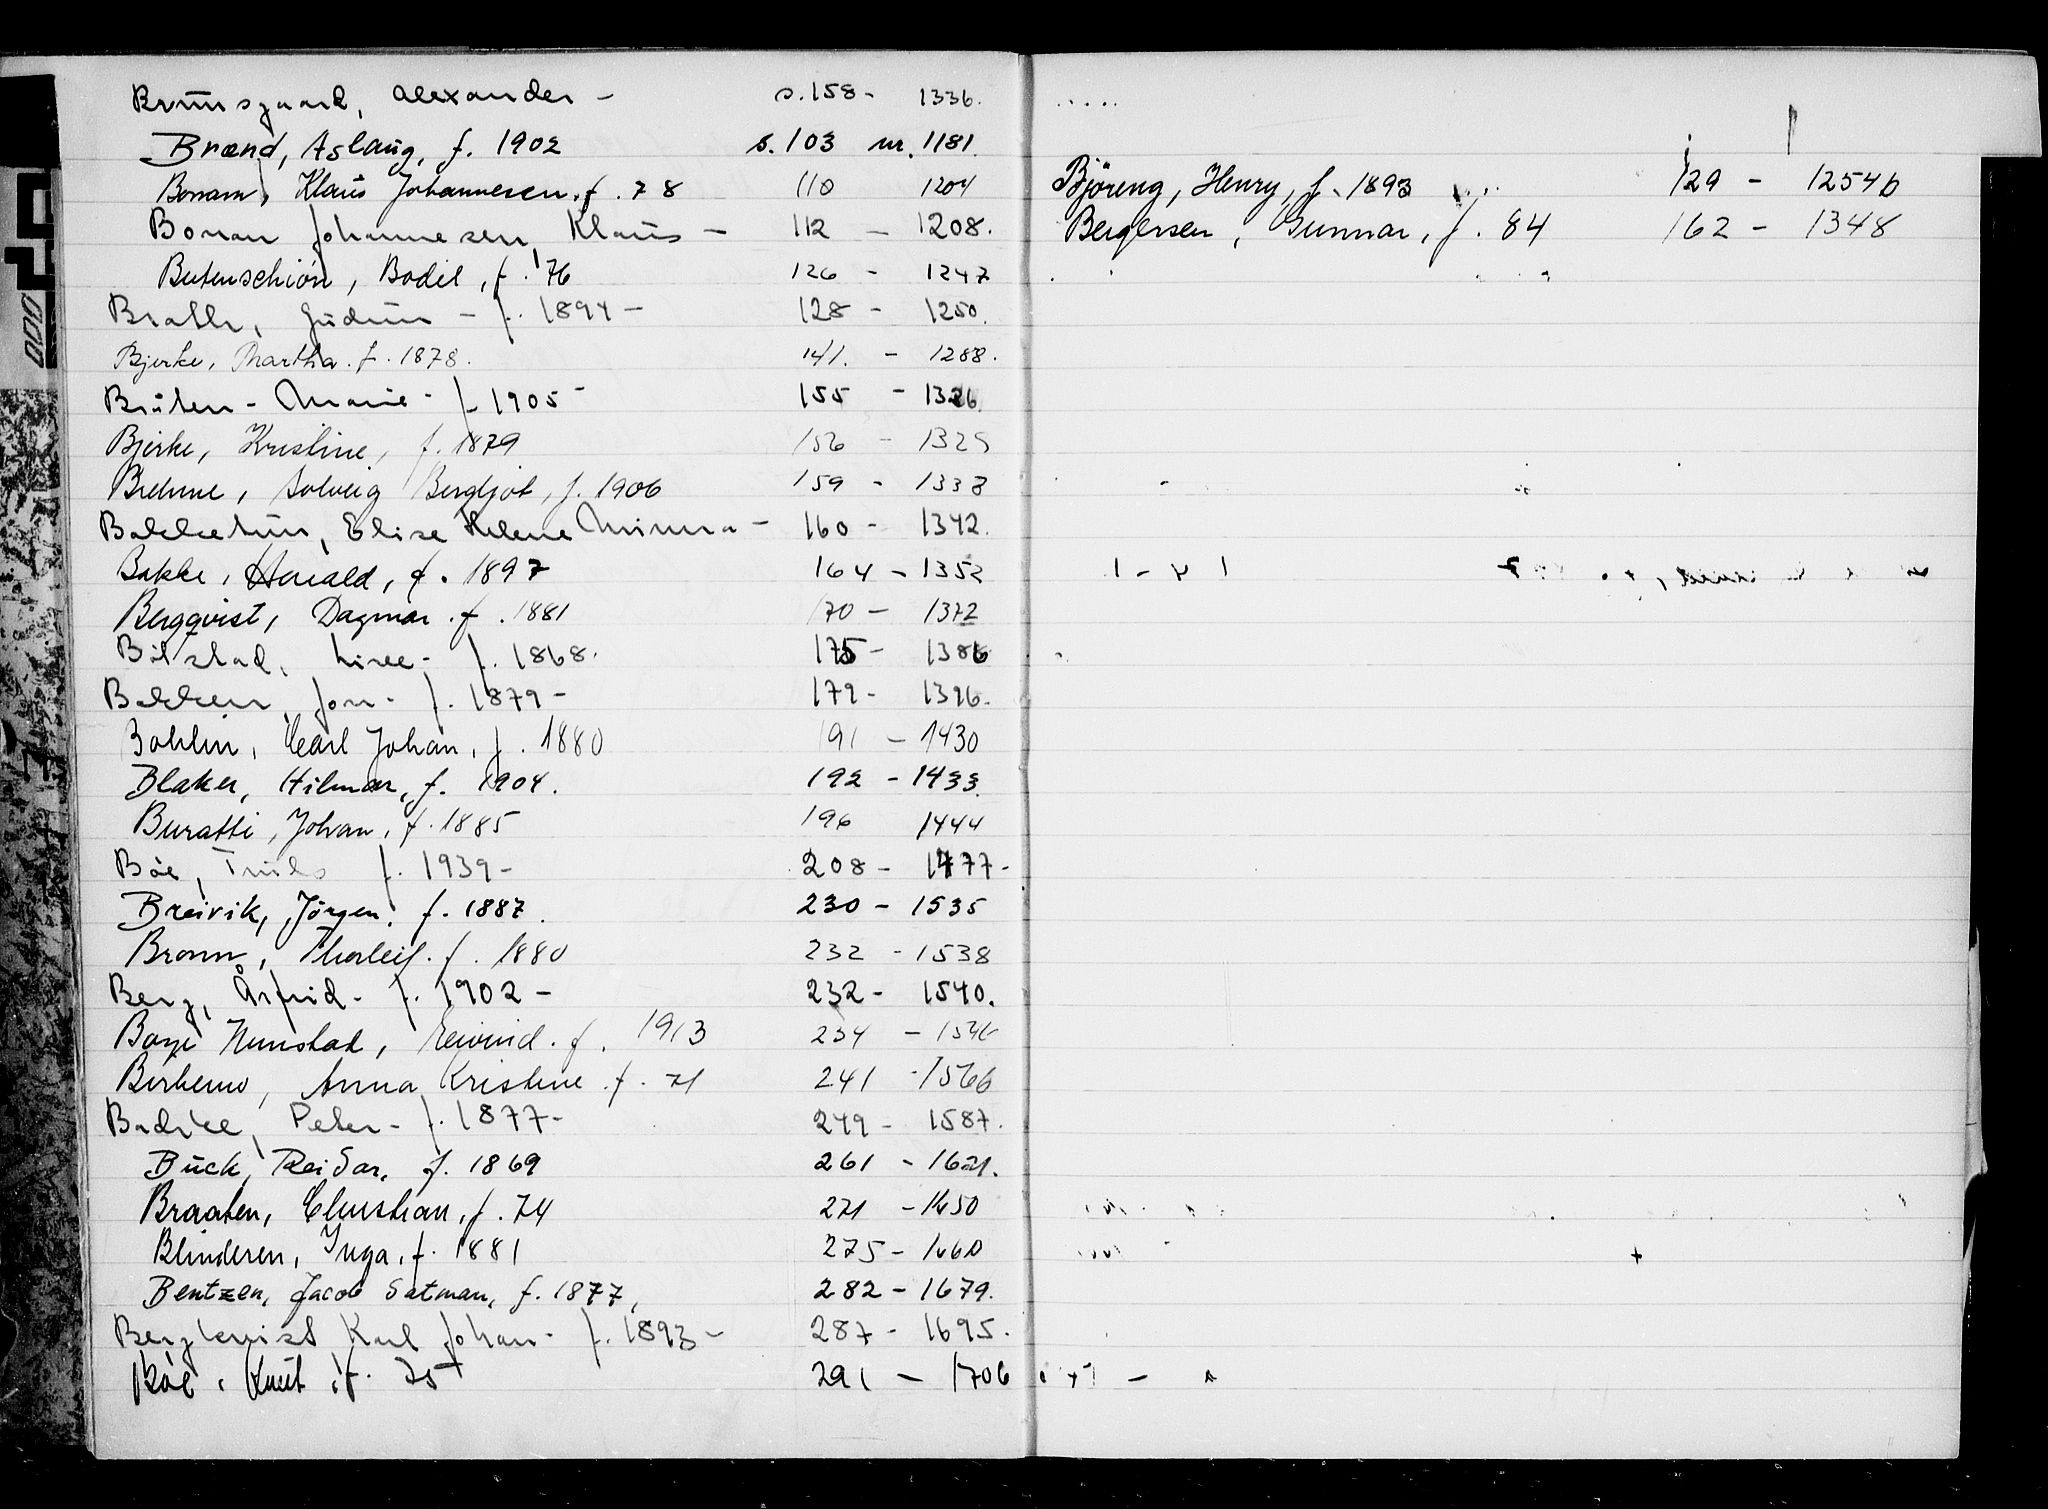 Brunsgaard, Alexander - s. 158 - 1336.
Brænd, Aslaug, f. 1902 s. 103 nr. 1181.
Bonam, Klaus Johannesen. f. 78 110 1204
Bonan Johannesen, Klaus - 112 - 1208.
Butenschiön, Bodil, f. 76 126 - 1247
Brathe, Gudrun - f. 1894 - 128 - 1250.
Bjerke, Martha. f. 1878. 141. - 1288.
Bråten - Marie - f. 1905 - 155 - 1326.
Bjerke, Kristine, f. 1879 156 - 1329
Brehme, Solveig Bergljot, f. 1906 159 - 1338
Bakketun, Elise Helene Minna - 160 - 1342.
Bakke, Harald, f. 1897 164 - 1352
Bergqvist, Dagmar. f. 1881 170 - 1372
Båstad, f. 1868. 175 - 1386
Bakken, Jon - f. 1879 - 179 - 1396.
Bohlin, Carl Johan, f. 1880 191 - 1430
Blaker, Hilmar, f. 1904. 192 - 1433.
Buratti, Johan, f. 1885 196 1444
Böe, Truls f. 1939 - 208 - 1477 -
Breivik, Jörgen, f. 1887. 230 - 1535
Bronn, Thorleif. f. 1880 232 - 1538
Berg, Åsfrid - f. 1902 - 232 - 1540.
Boye Nunstad, Eivind. f. 1913 234 - 1546
Anna Kristine. f. 71 241 - 1566
Badcke, Peter - f. 1877 - 249 - 1587.
Buck, Reidar, f. 1869 261 - 1621.
Braaten, Christian, f. 74 271 - 1650
Blinderen, Inga, f. 1881 275 - 1660
Bentzen, Jacob Satman, f. 1877, 282 - 1679.
Bergkvist Karl Johan - f. 1893 - 287 - 1695.
Böe, Knut, f. 75 291 - 1706
Björeng, Henry, f. 1893 129 - 1254b
Bergersen, Gunnar, f. 84 162 - 1348